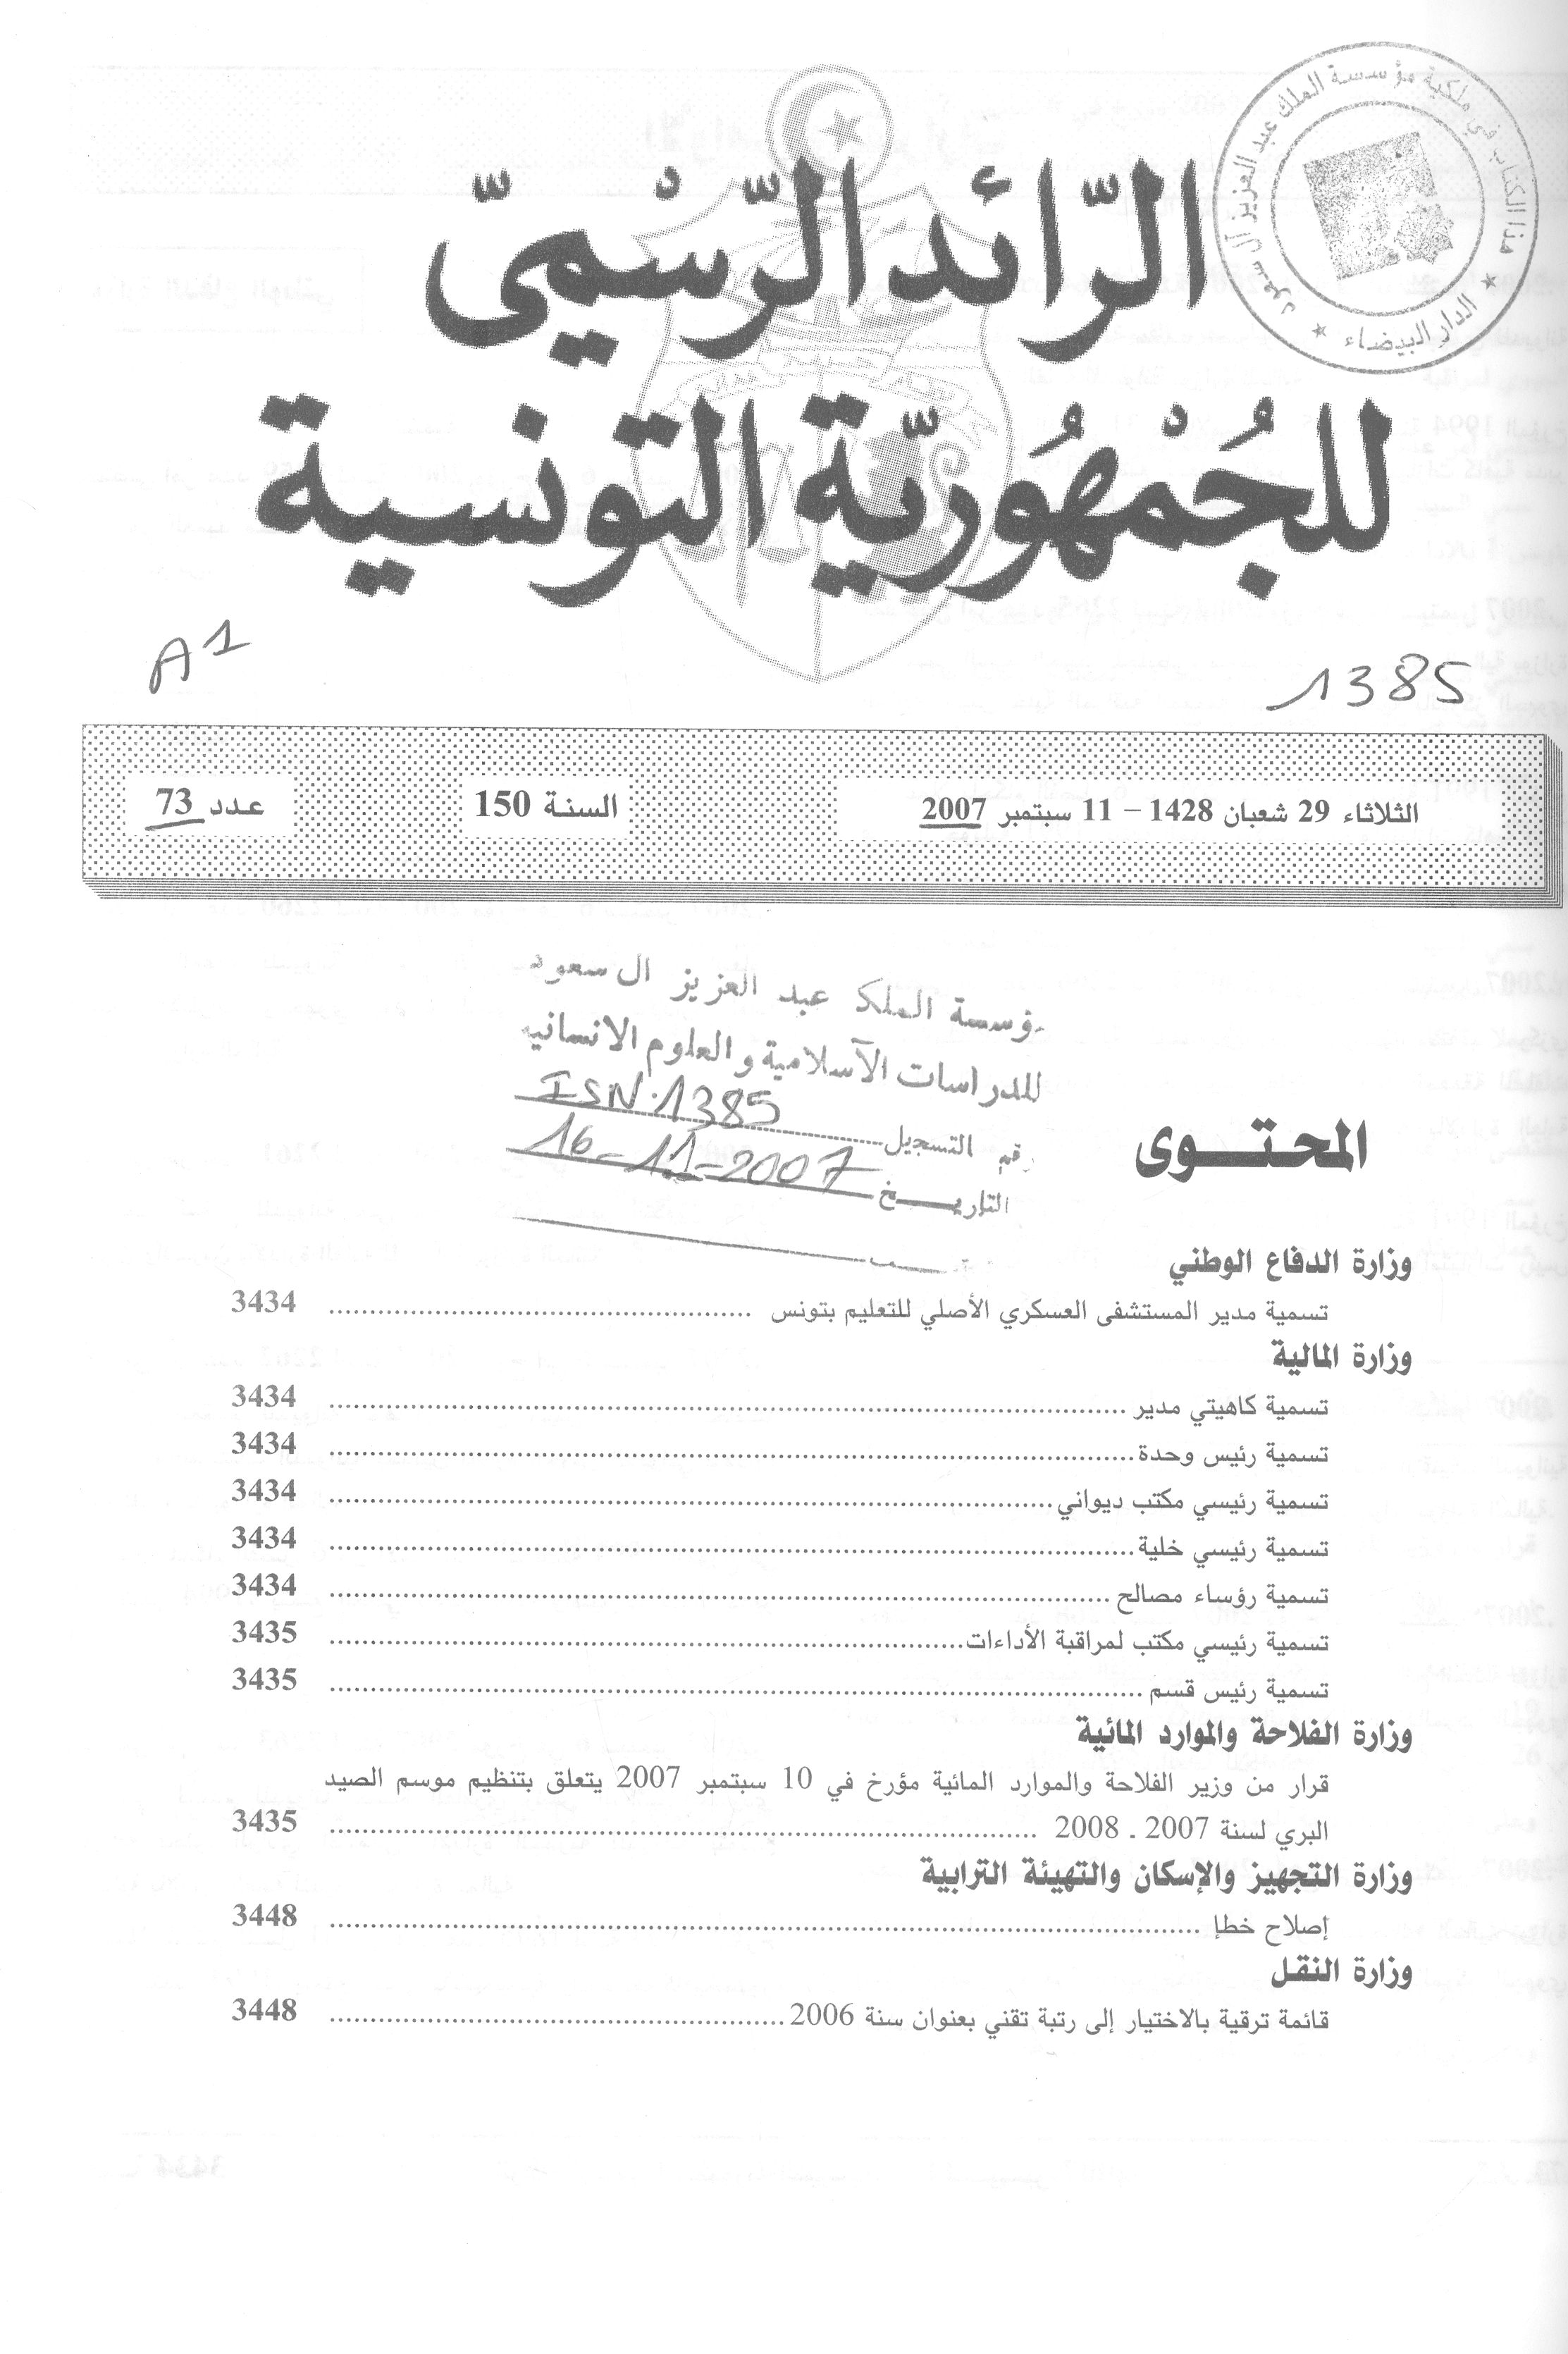 هذا الكتاب في ملكية مؤسسة الملك عبد العزيز ال سعود
★ الدار البيضاء ★
الرّائد الرّسْميّ
للجُمْهُوريّة التونسية
A1
1385
الثلاثاء 29 شعبان 1428 – 11 سبتمبر 2007
السنة 150
عدد 73
مؤسسة الملك عبد العزيز ال سعود
للدراسات الآسلامية والعلوم الانسانية
رقم التسجيل ISN.1385
التاريخ 16-11-2007
المحتوى
وزارة الدفاع الوطني
تسمية مدير المستشفى العسكري الأصلي للتعليم بتونس ........ 3434
وزارة المالية
تسمية كاهيتي مدير ........ 3434
تسمية رئيس وحدة ........ 3434
تسمية رئيسي مكتب ديواني ........ 3434
تسمية رئيسي خلية ........ 3434
تسمية رؤساء مصالح ........ 3434
تسمية رئيسي مكتب لمراقبة الأداءات ........ 3435
تسمية رئيس قسم ........ 3435
وزارة الفلاحة والموارد المائية
قرار من وزير الفلاحة والموارد المائية مؤرخ في 10 سبتمبر 2007 يتعلق بتنظيم موسم الصيد
البري لسنة 2007 ـ 2008 ........ 3435
وزارة التجهيز والإسكان والتهيئة الترابية
إصلاح خطإ ........ 3448
وزارة النقل
قائمة ترقية بالاختيار إلى رتبة تقني بعنوان سنة 2006 ........ 3448